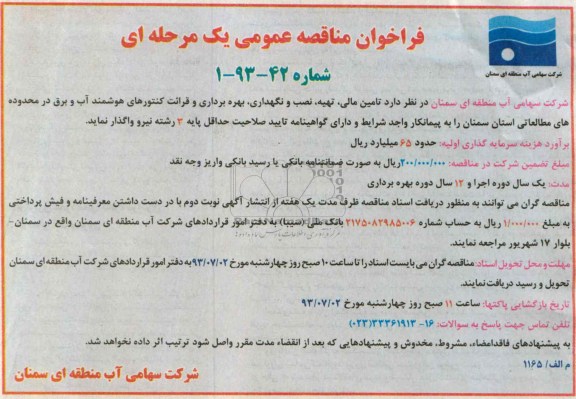 شرکت سهامی آب منطقه ای سمنان
فراخوان مناقصه عمومی یک مرحله ای
شماره ۴۲-۹۳-۱
شرکت سهامی آب منطقه ای سمنان در نظر دارد تامین مالی، تهیه، نصب و نگهداری، بهره برداری و قرائت کنتورهای هوشمند آب و برق در محدوده
های مطالعاتی استان سمنان را به پیمانکار واجد شرایط و دارای گواهینامه تایید صلاحیت حداقل پایه ۳ رشته نیرو واگذار نماید.
برآورد هزینه سرمایه گذاری اولیه: حدود ۶۵ میلیارد ریال
مبلغ تضمین شرکت در مناقصه: ۲۰۰/۰۰۰/۰۰۰ریال به صورت ضمانتنامه بانکی یا رسید بانکی واریز وجه نقد
مدت: یک سال دوره اجرا و ۱۲ سال دوره بهره برداری
مناقصه گران می توانند به منظور دریافت اسناد مناقصه ظرف مدت یک هفته از انتشار آگهی نوبت دوم با در دست داشتن معرفینامه و فیش پرداختی
به مبلغ ۱/۰۰۰/۰۰۰ ریال به حساب شماره ۲۱۷۵۰۸۲۹۸۵۰۰۶ بانک ملی (سیبا) به دفتر امور قراردادهای شرکت آب منطقه ای سمنان واقع در سمنان-
بلوار ۱۷ شهریور مراجعه نمایند.
مهلت و محل تحویل اسناد: مناقصه گران می بایست اسناد را تا ساعت ۱۰ صبح روز چهارشنبه مورخ ۹۳/۰۷/۰۲ به دفتر امور قراردادهای شرکت آب منطقه ای سمنان
تحویل و رسید دریافت نمایند.
تاریخ بازگشایی پاکتها: ساعت ۱۱ صبح روز چهارشنبه مورخ ۹۳/۰۷/۰۲
تلفن تماس جهت پاسخ به سوالات: ۱۶- ۳۳۳۶۱۹۱۳(۰۲۳)
به پیشنهادهای فاقد امضاء، مشروط، مخدوش و پیشنهادهایی که بعد از انقضاء مدت مقرر واصل شود ترتیب اثر داده نخواهد شد.
م الف/ ۱۱۶۵
شرکت سهامی آب منطقه ای سمنان